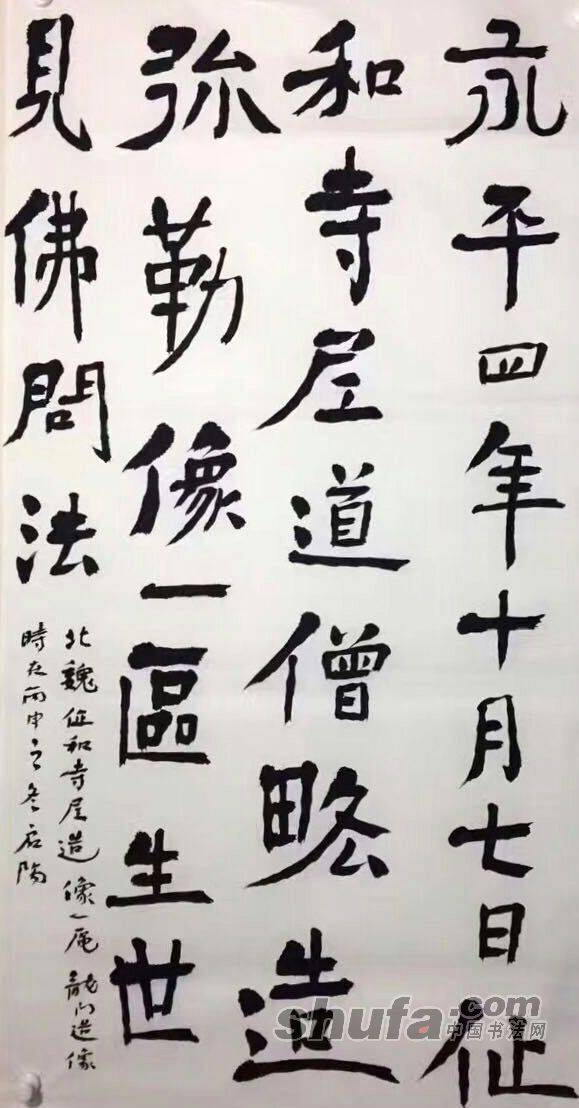 永平四年十月七日征
和寺尼道僧略造
弥勒像一區生世
見佛問法
北魏征和寺尼造像一 龍门造像
時在丙申之冬
shufa.com
中国书法网